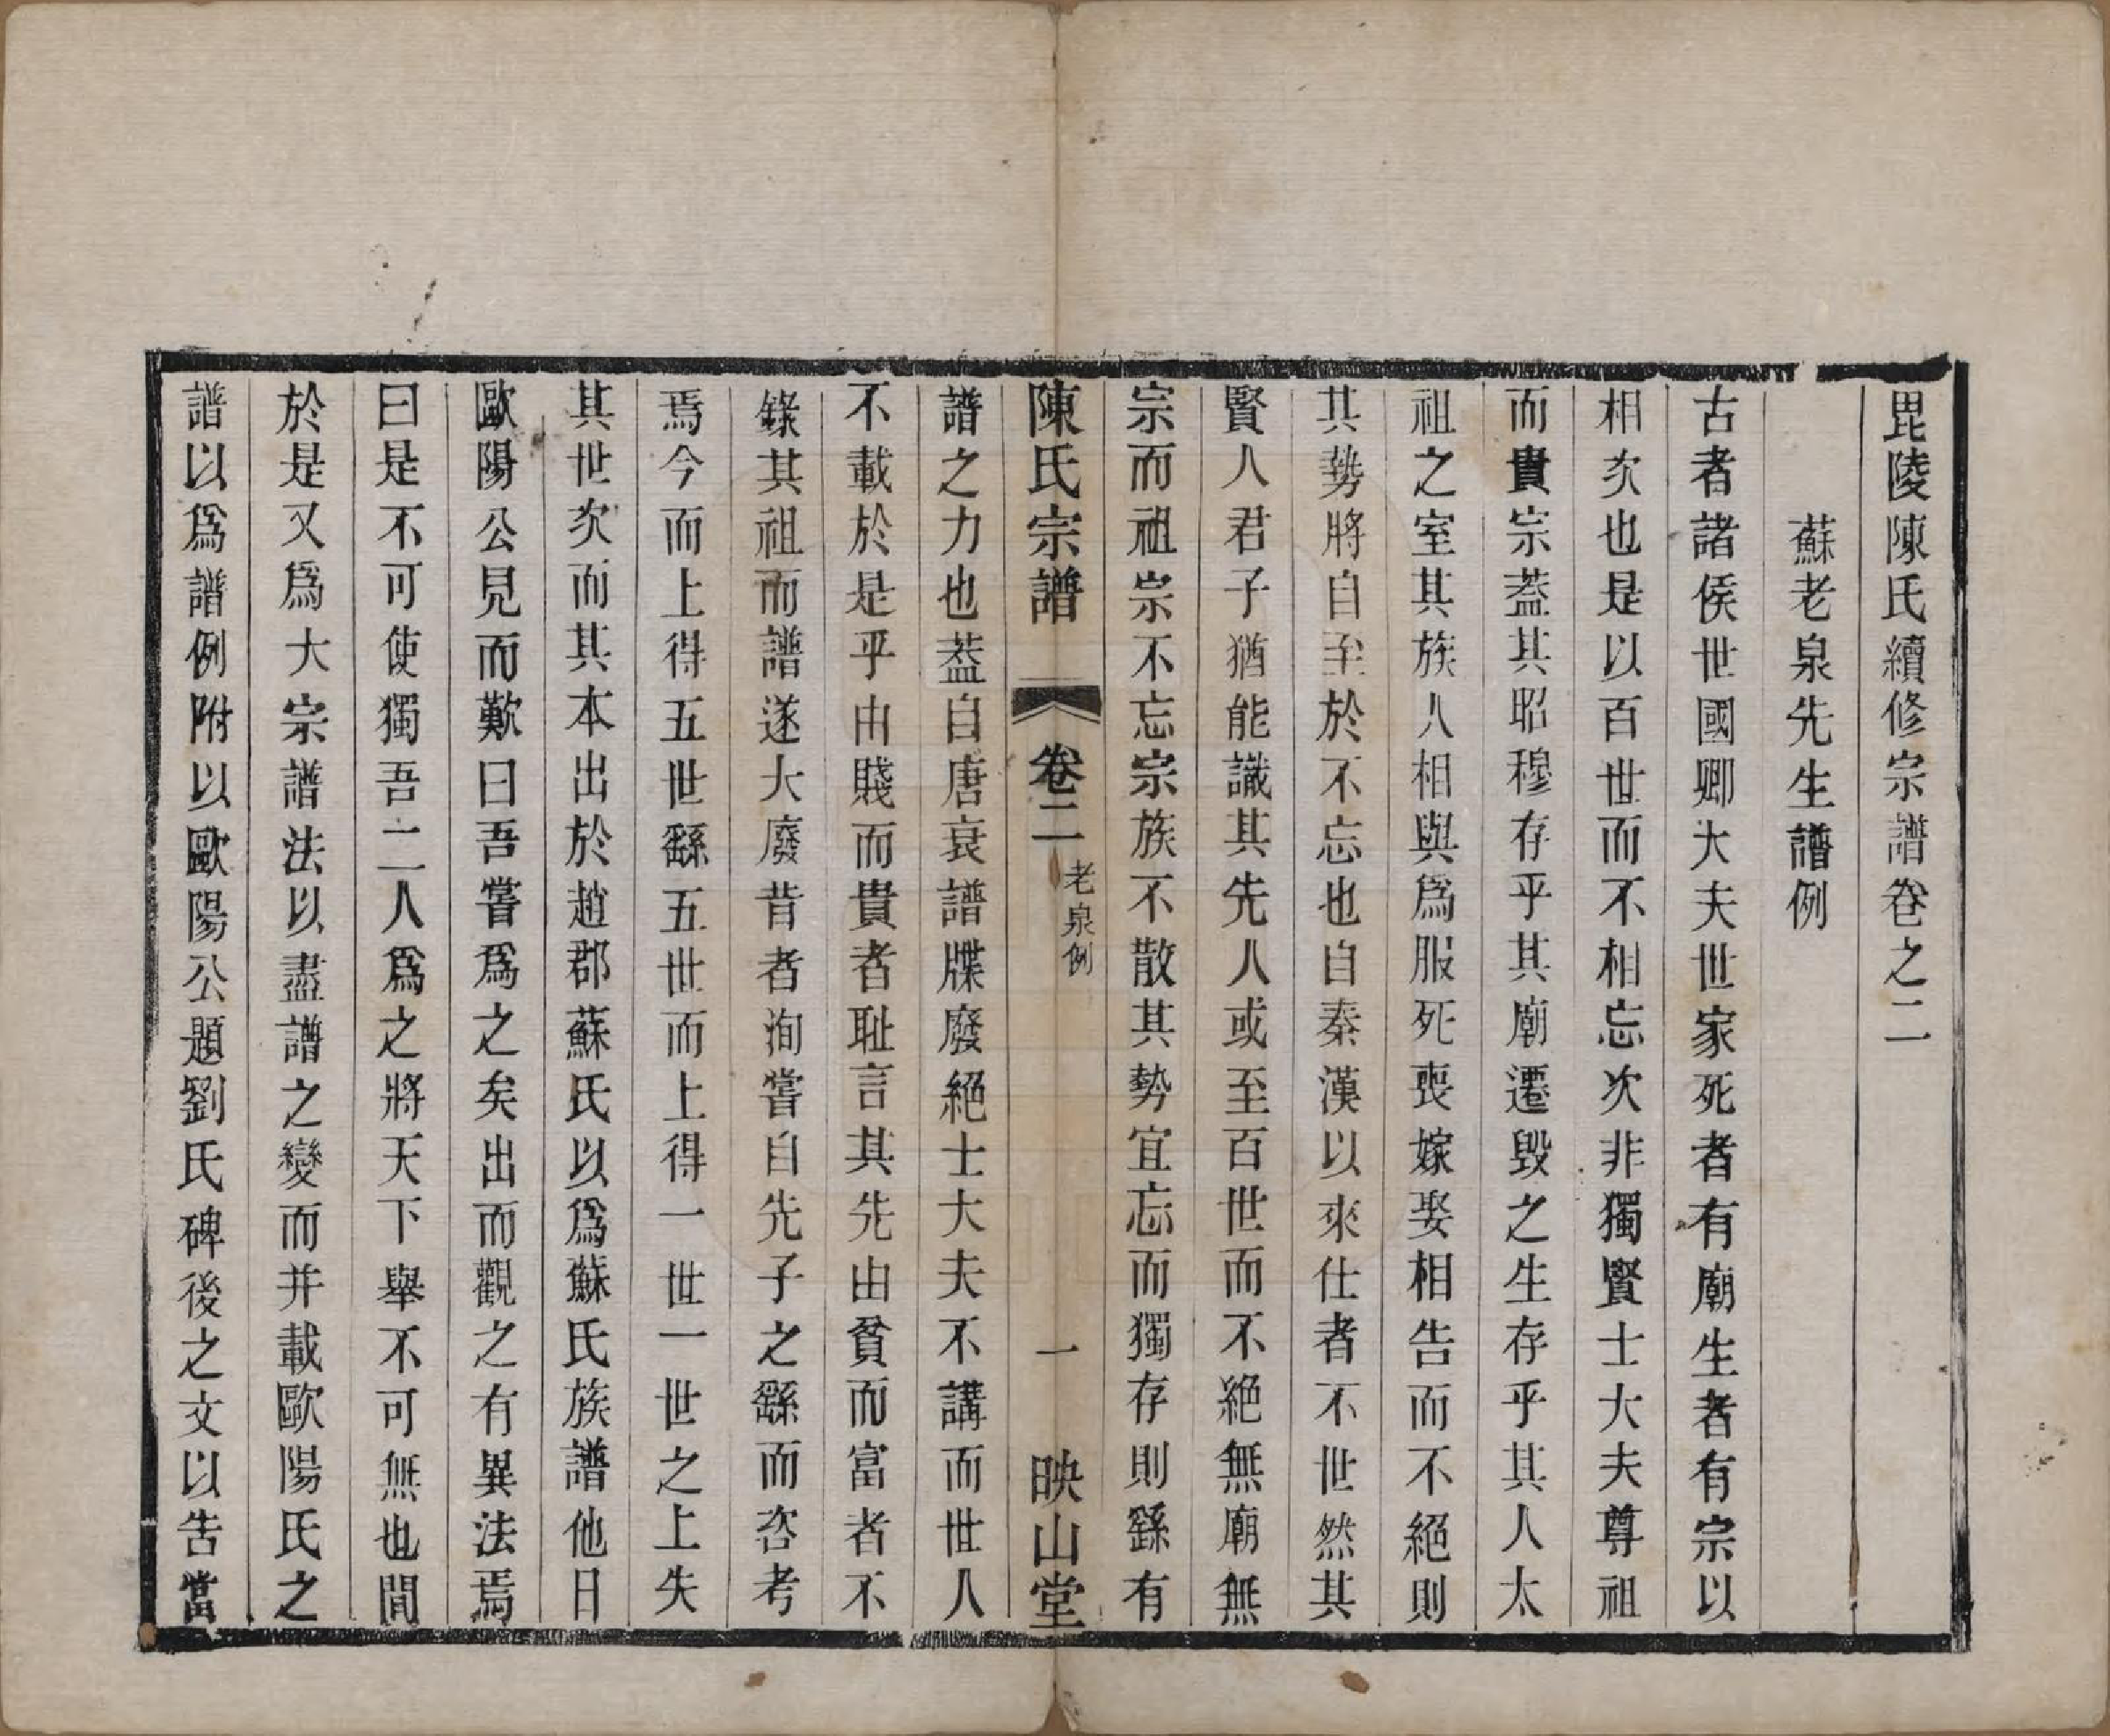 毘陵陳氏續修宗譜卷之二
蘇老泉先生譜例
古者諸侯世國卿大夫世家死者有廟生者有宗以
相次也是以百世而不相忘次非獨賢士大夫尊祖
而貴宗葢其昭穆存乎其廟遷毀之生存乎其人太
祖之室其族人相與爲服死喪嫁娶相告而不絕則
其勢將自至於不忘也自秦漢以來仕者不世然其
賢人君子猶能識其先人或至百世而不絕無廟無
宗而祖宗不忘宗族不散其勢宜忘而獨存則繇有
陳氏宗譜
卷二
老泉例
一
映山堂
譜之力也葢自唐衰譜牒廢絕士大夫不講而世人
不載於是乎由賤而貴者耻言其先由貧而富者不
錄其祖而譜遂大廢昔者洵嘗自先子之繇而咨考
焉今而上得五世繇五世而上得一世一世之上失
其世次而其本出於趙郡蘇氏以爲蘇氏族譜他日
歐陽公見而歎曰吾嘗爲之矣出而觀之有異法焉
曰是不可使獨吾二人爲之將天下舉不可無也間
於是又爲大宗譜法以盡譜之變而并載歐陽氏之
譜以爲譜例附以歐陽公題劉氏碑後之文以告當